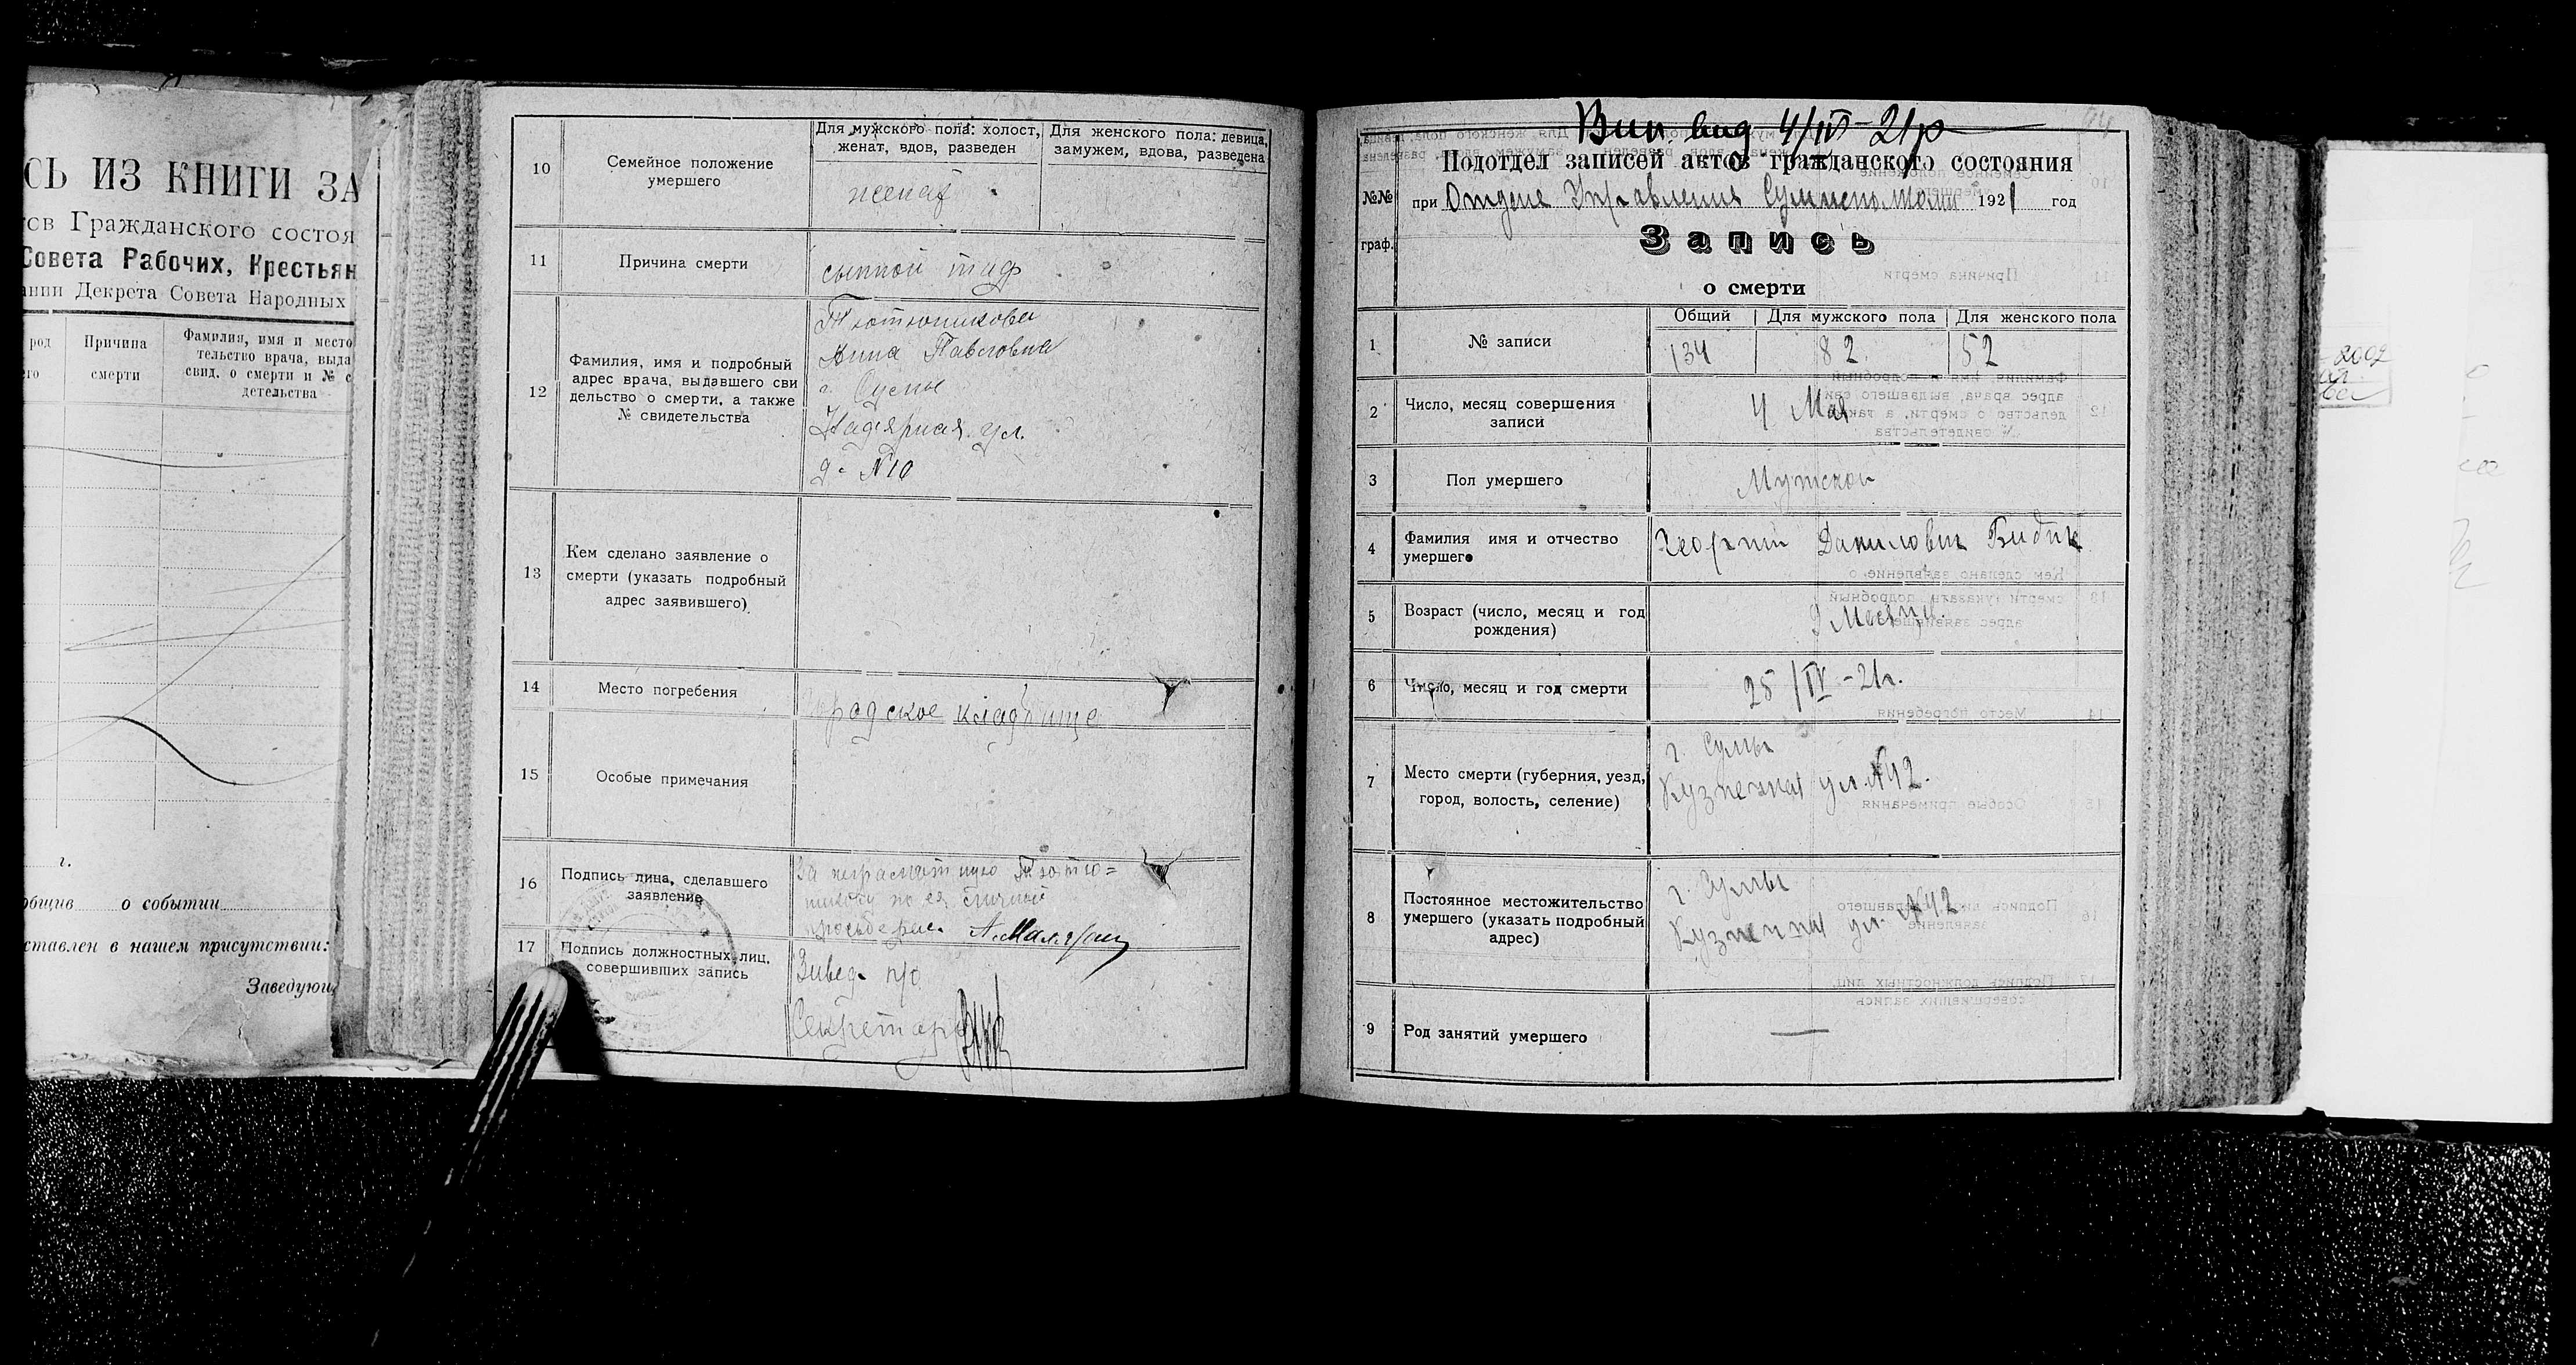 СЬ ИЗ КНИГИ ЗА
тов Гражданского состоя
Совета Рабочих, Крестьян
ании Декрета Совета Народных
род
его
Причина
смерти
Фамилия, имя и место
тельство врача, выда
свид. о смерти и № с
детельства
г.
общив о событии
ставлен в нашем присутствии:
Заведующ
10
Семейное положение
умершего
Для мужского пола: холост,
женат, вдов, разведен
Для женского пола: девица,
замужем, вдова, разведена
женат
11
Причина смерти
сыпной тиф
12
Фамилия, имя и подробный
адрес врача, выдавшего сви
дельство о смерти, а также
№ свидетельства
Тютюникова
Анна Павловна
г. Сумы
ул.
д. №10
13
Кем сделано заявление о
смерти (указать подробный
адрес заявившего)
14
Место погребения
Городское кладбище
15
Особые примечания
16
Подпись лица, сделавшего
заявление
За неграмотную Тютю=
никову по ея личной
просьбе рас.
17
Подпись должностных лиц,
совершивших запись
Завед. п/о
Секретарь
Вип. вид 4/IV-21р
Подотдел записей актов гражданского состояния
№№
граф.
при Отделе Управления Сумисполкома 1921 год
Запись
о смерти
1
№ записи
Общий
Для мужского пола
Для женского пола
134
82
52
2
Число, месяц совершения
записи
4 Мая
3
Пол умершего
Мужской
4
Фамилия имя и отчество
умершего
Георгий Данилович Бидик
5
Возраст (число, месяц и год
рождения)
9 Месяц.
6
Число, месяц и год смерти
25/IV-21г.
7
Место смерти (губерния, уезд,
город, волость, селение)
г. Сумы
Кузнечная ул. №42.
8
Постоянное местожительство
умершего (указать подробный
адрес)
г. Сумы
Кузнечная ул. №42
9
Род занятий умершего
—
2002